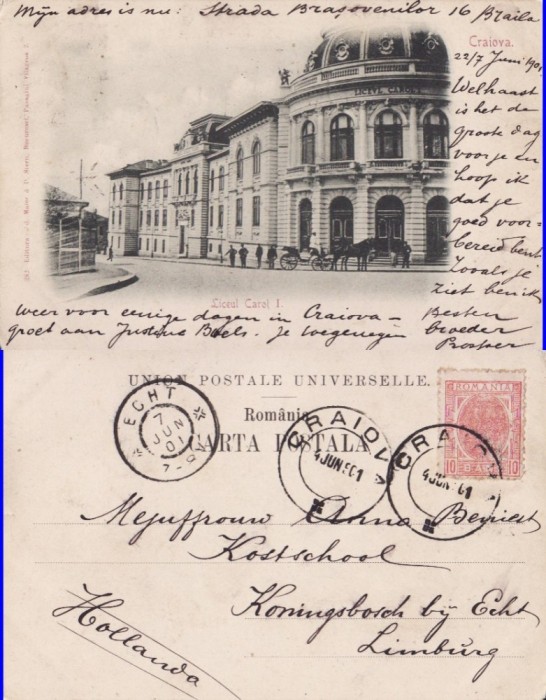 Mijn adres is nu: Strada Braşovenilor 16 Braila
Craiova.
22/7 Juni 1901
Welhaast
is het de
groote dag
voor je en
hoop ik
dat je
goed voor-
bereid bent
Zooals je
ziet ben ik
LICEUL CAROL I
Liceul Carol I.
weer voor eenige dagen in Craiova -
groet aan Justine Boels. Je toegenegen
Besten
broeder
UNION POSTALE UNIVERSELLE.
România
CARTA POSTALA
ECHT
7
JUN
01
7-8
CRAIOVA
4 JUN 901
CRAIOVA
4 JUN 901
ROMANIA
10 BANI 10
Mejuffrouw Anna Beniest
Kostschool
Koningsbosch bij Echt
Limburg
Hollanda